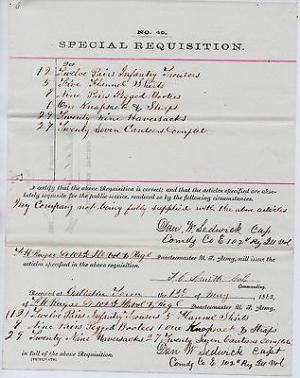 No. 40.
SPECIAL REQUISITION.
For
12 Twelve Pairs Infantry Trousers
5 Five Flannel Shirts
9 Nine Pairs Pegged Bootees
1 One Knapsack & Straps
29 Twenty Nine Haversacks
27 Twenty Seven Canteens Complete
I certify that the above Requisition is correct; and that the articles specified are abso-
lutely requisite for the public service, rendered so by the following circumstances.
My Company not being fully supplied with the above articles
Dan W. Sedwick Cap
Comdy Co E 102d Regt Ill Vol
Quartermaster U. S. Army, will issue the
articles specified in the above requisition.
F. C. Smith
Commanding.
Received at Gallatin Tenn the of May 1863,
Quartermaster U. S. Army,
12 Twelve Pairs Infantry Trousers 5 Flannel Shirts
9 Nine Pairs Pegged Bootees 1 one Knapsact & Straps
29 Twenty Nine Haversacks 27 Twenty Seven Canteens Complete
in full of the above Requisition.
Dan W Sedwick Capt
Comdy Co E 102d Regt Ill Vol.